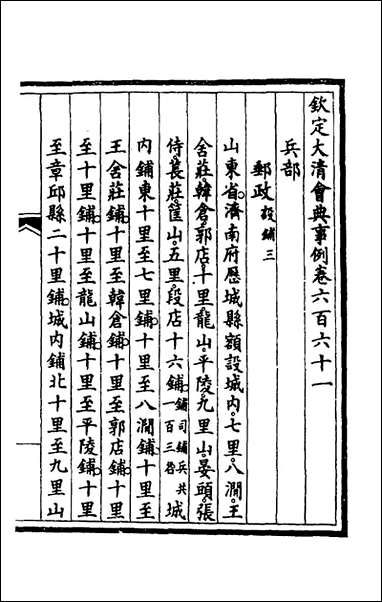 欽定大清會典事例卷六百六十一
兵部
郵政設鋪三
山東省。濟南府歷城縣額設城内。七里。八澗。王
舍莊。韓倉。郭店。十里。龍山。平陵。九里山。晏頭。張
侍。萇莊。筐山。五里。段店十六鋪。鋪司鋪兵共一百三名城
内鋪東十里至七里鋪。十里至八澗鋪。十里至
王舍莊鋪。十里至韓倉鋪。十里至郭店鋪。十里
至十里鋪。十里至龍山鋪。十里至平陵鋪。十里
至章邱縣二十里鋪。城内鋪北十里至九里山